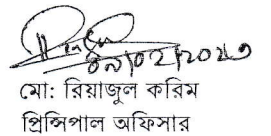 ০৯/০২/২০২৩
মো: রিয়াজুল করিম
প্রিন্সিপাল অফিসার